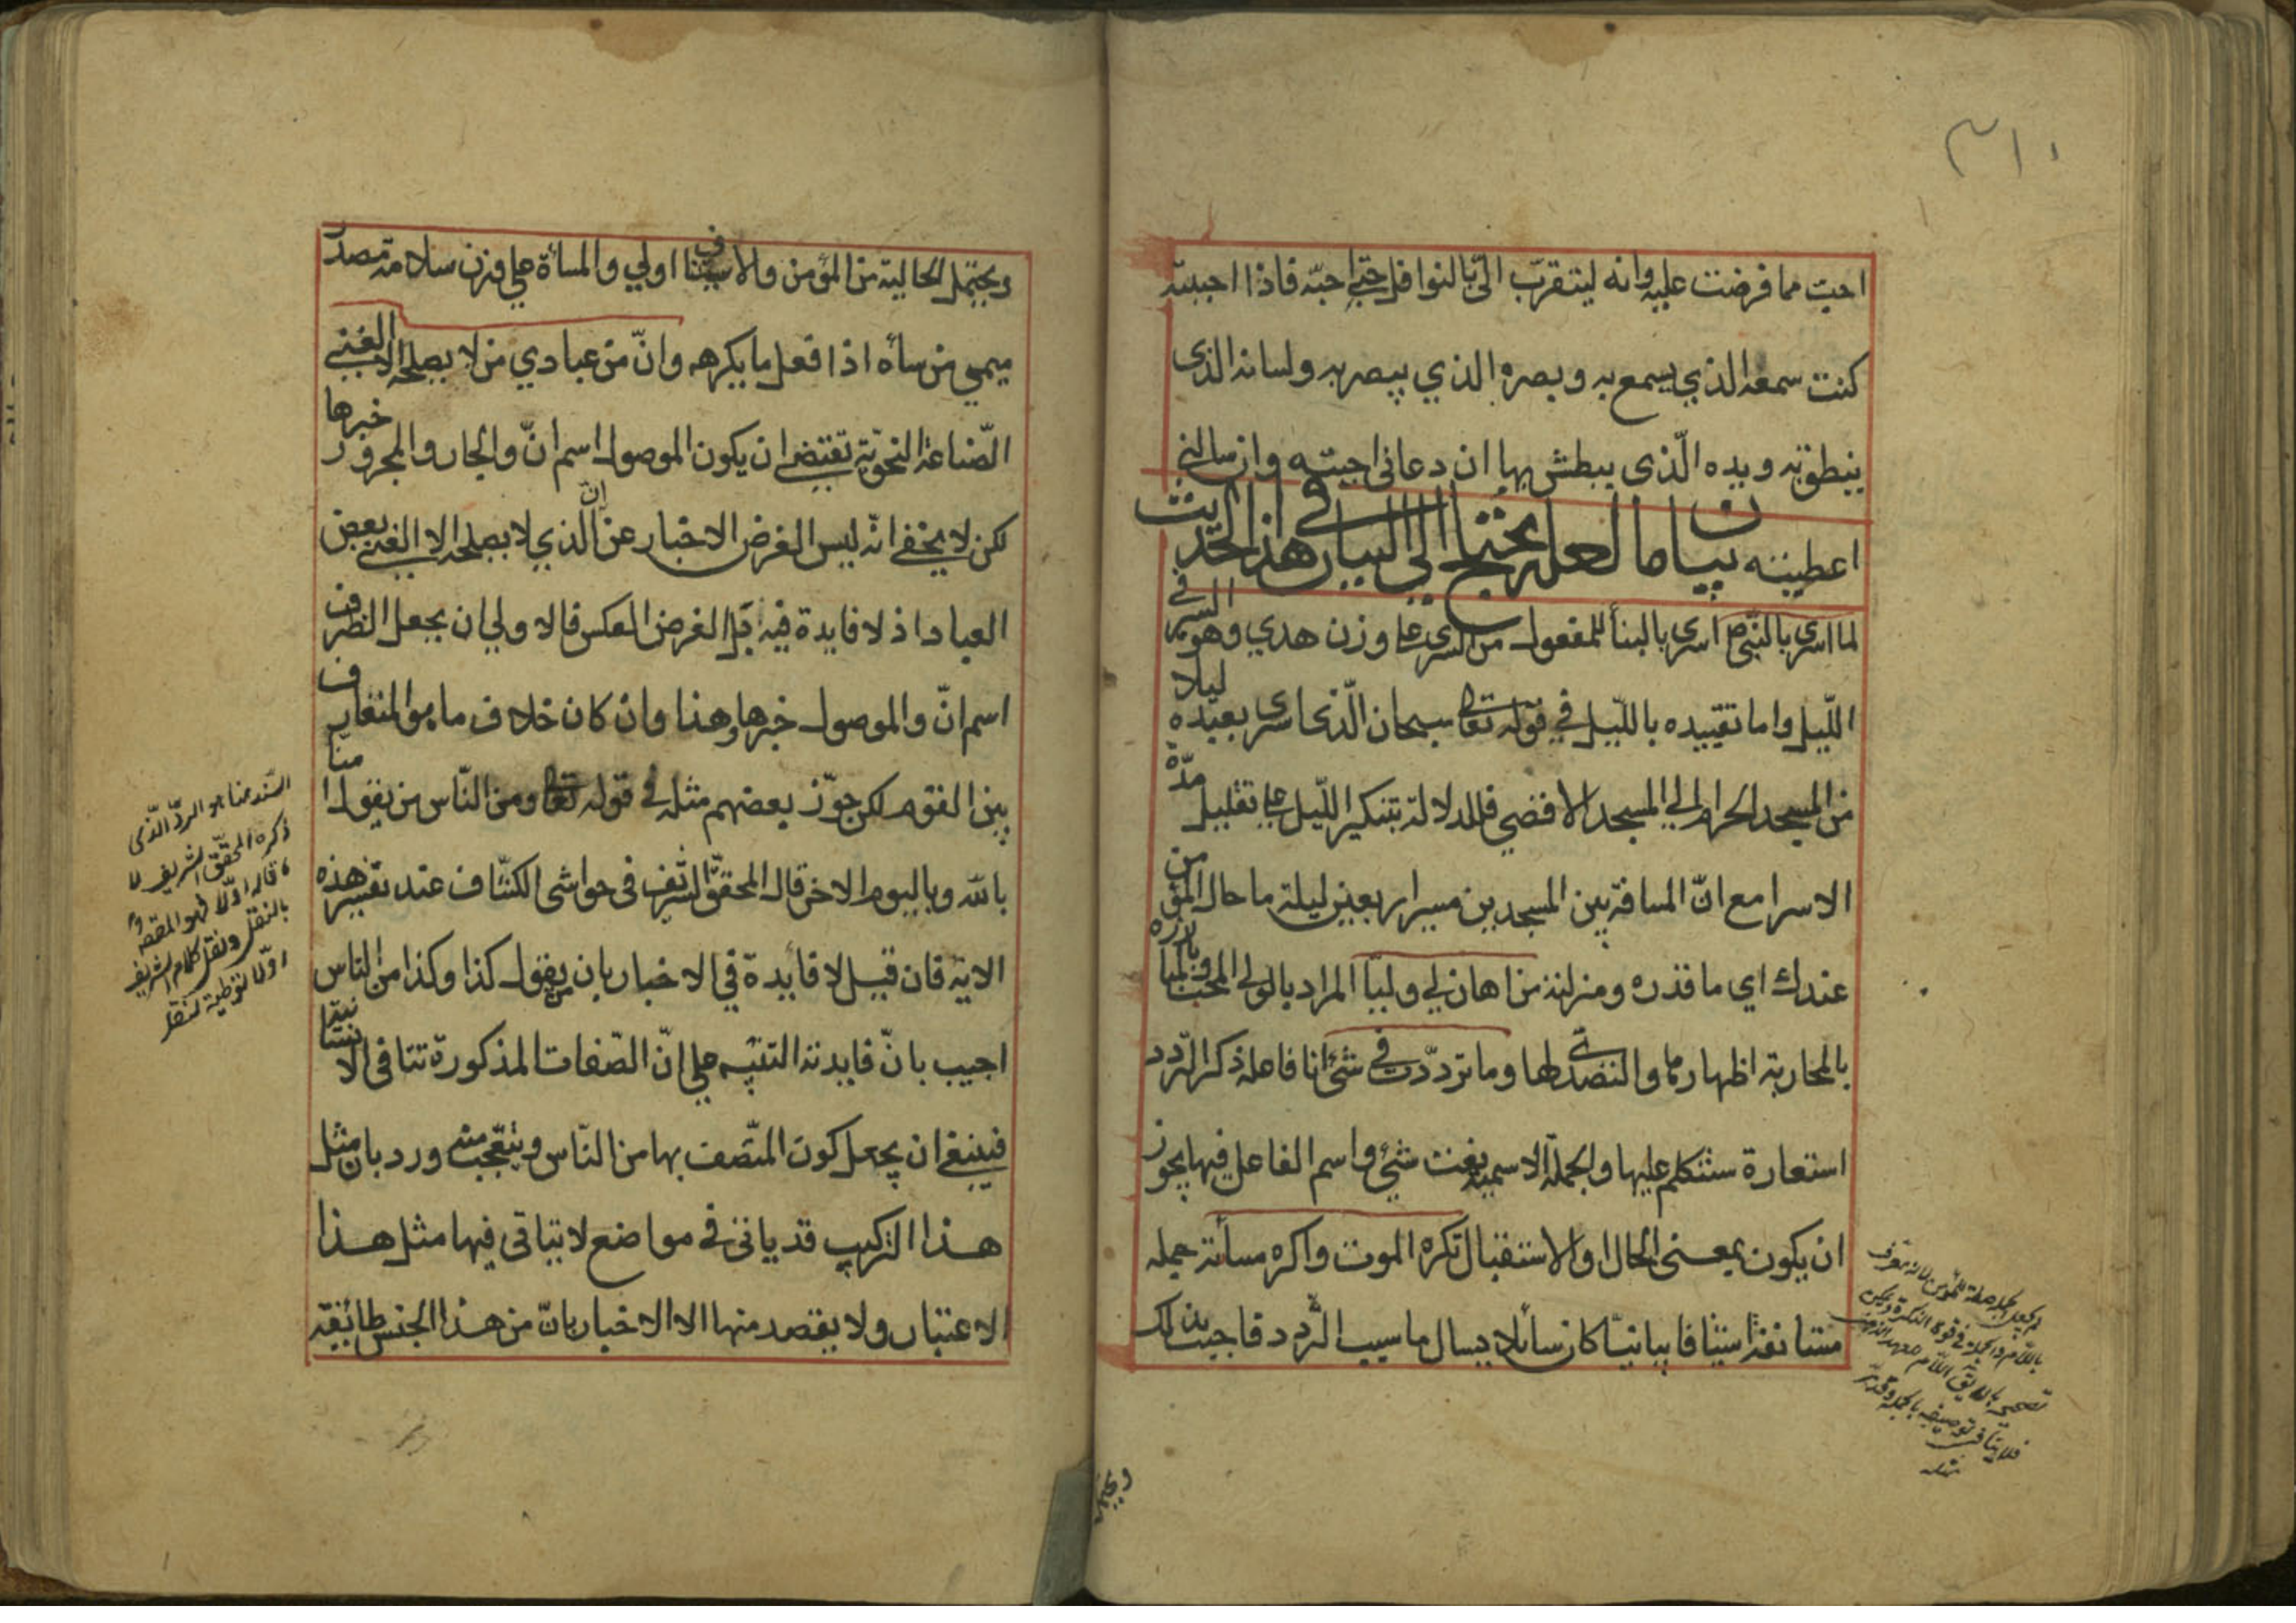 ٣١٠
احب مما فرضت عليه وانه ليتقرب الىّ بالنوافل حتى احبّه فاذا احببته
كنت سمعه الذي يسمع به وبصره الذي يبصر به ولسانه الذى
ينطق به ويده الّذى يبطش بها ان دعانى اجبته وان سالنى
اعطيته بيان ما لعله يحتاج الى البيان في هذا الحديث
لما اسرى بالنبى ص اسرى بالبنأ للمفعول من السرى على وزن هدي وهو السير في
اللّيل واما تقييده بالليل في قوله تعا سبحان الّذى اسرى بعبده ليلا
من المسجد الحرام الي المسجد الاقصي فللدلالة بتنكير اللّيل على تقليل مدّة
الاسرا مع انّ المسافة بين المسجدين مسير اربعين ليلة ما حال المؤمن
عندك اي ما قدره ومنزلته من اهان لي وليّا المراد بالولي المحب وبالمبارزة
بالمحاربة اظهارها والتصدى لها وما تردّدت في شئ انا فاعله ذكر التردد
استعارة سنتكلم عليها والجملة الاسمية نعت شئ واسم الفاعل فيها يجوز
ان يكون بمعنى الحال او الاستقبال تكره الموت واكره مسأته جمله
مستانفة استينافا بيانيّا كان سائلا يسال ما سبب التّردد فاجيب بذلك
ويحتمل
ويحتمل الحالية من المؤمن والاستيناف اولي والمسأة على وزن سلامة مصدر
ميمى من سأه اذا فعل ما يكرهه وانّ من عبادي من لا يصلحه الا الغنى
الصّناعة النحويّة تقتضى ان يكون الموصول اسم انّ والجار والمجرور خبرها
لكن لا يخفى انّه ليس الغرض الاخبار عن انّ الذي لا يصلحه الا الغنى بعض
العباد اذ لا فايدة فيه بل الغرض العكس فالاولي ان يجعل الظرف
اسم انّ والموصول خبرها وهذا وان كان خلاف ما هو المتعارف
بين القوم لكن جوّز بعضهم مثله في قوله تعا ومن النّاس من يقول امنا
بالله وباليوم الاخر قال المحقق الشريف فى حواشى الكشّاف عند تفسير هذه
الاية فان قيل لا فايدة في الاخبار بان من يقول كذا وكذا من النّاس
اجيب بانّ فايدته التنبيه على انّ الصّفات المذكورة تنافى الانسانيّة
فينبغى ان يجعل كون المتّصف بها من النّاس ويتعجب منه ورد بان مثل
هذا التركيب قد ياتى في مواضع لا يتاتى فيها مثل هذا
الاعتبار ولا يقصد منها الا الاخبار بانّ من هذا الجنس طائفة
هو الردّ الذى
ذكره المحقّق الشريف
بالنقل ونقل كلام الشريف